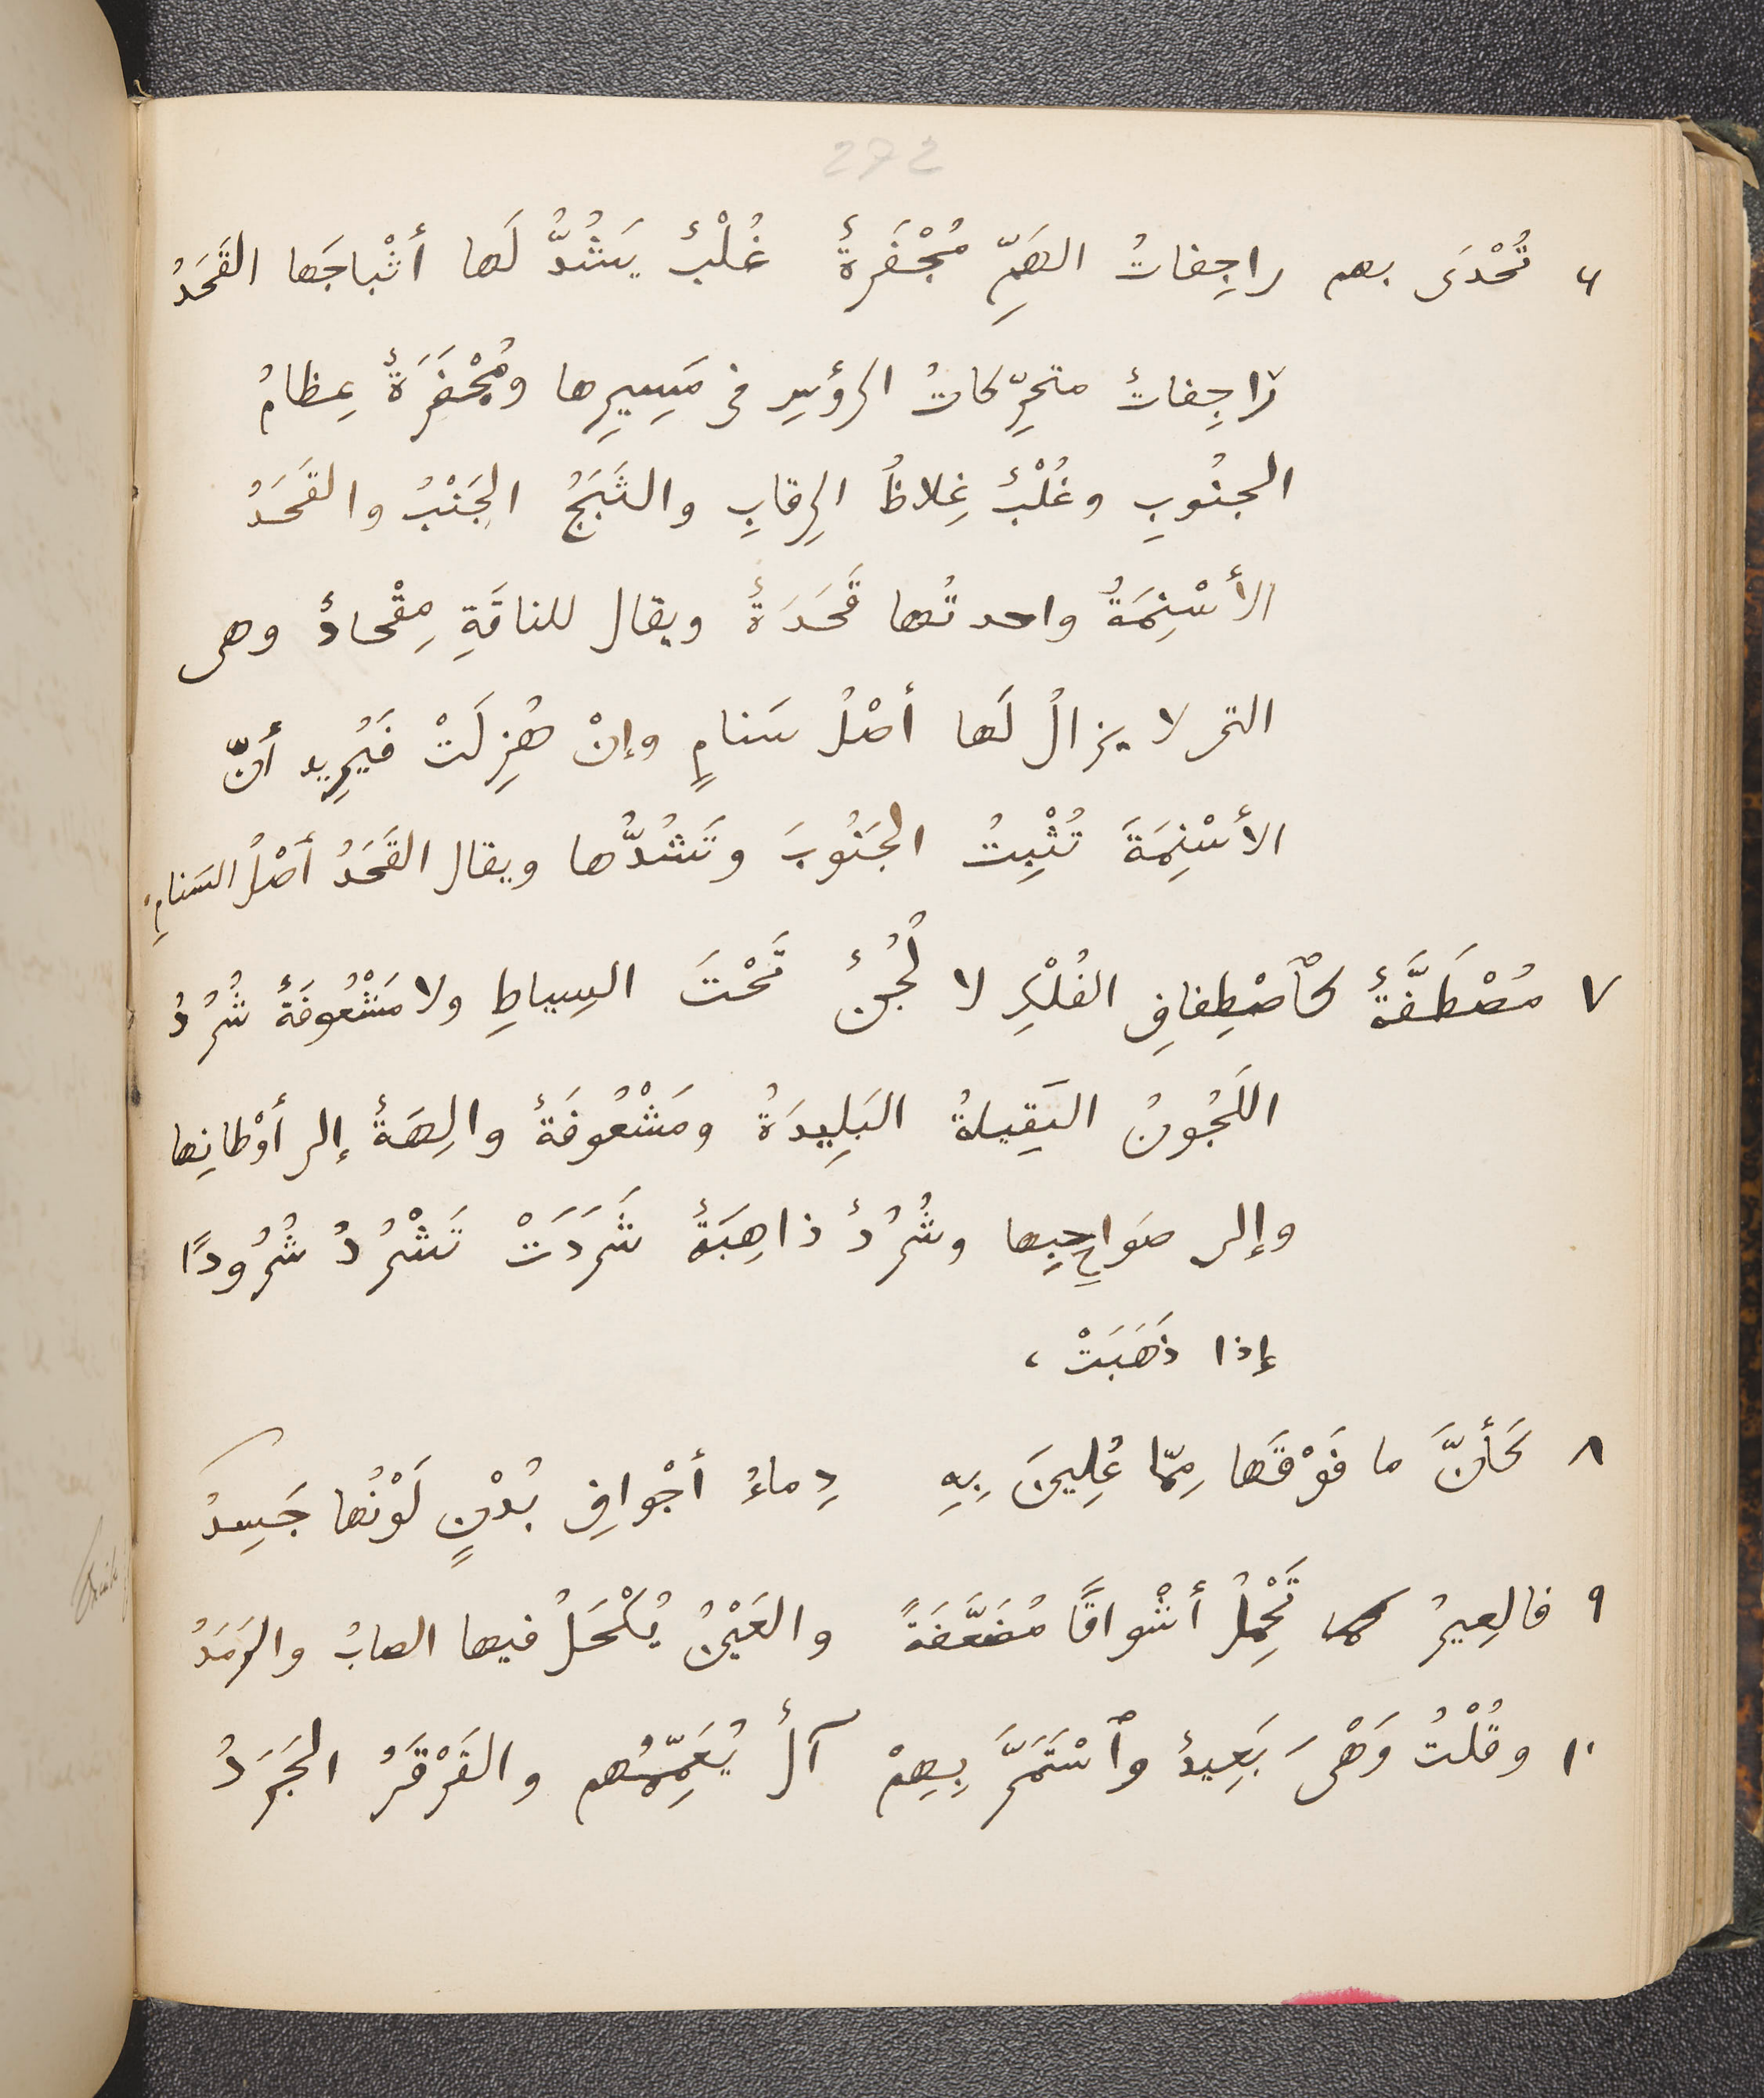 272
٦ تُحْدَى بهم راجِفاتُ الهَمِّ مُجْفَرةٌ غُلْبٌ يَشُدُّ لَها أثْباجَها القَحَدُ
راجِفاتٌ متحرِّكاتُ الرؤسِ فى مَسِيرِها ومُجْفَرَةٌ عِظامُ
الجنُوبِ وغُلْبٌ غِلاظُ الرِقابِ والثَبَجُ الجَنْبُ والقَحَدُ
الأسْنِمَةُ واحدتُها قَحَدَةٌ ويقال للناقَةِ مِقْحادٌ وهى
التى لا يزالُ لَها أصْلُ سَنامٍ وإنْ هُزِلَتْ فَيُرِيد أنّ
الأسْنِمَةَ تُثْبِتُ الجَنُوبَ وتَشُدُّها ويقال القَحَدُ أصْلُ السَنامِ،
٧ مُصْطَفَّةٌ كٱصْطِفافِ الفُلْكِ لا لُجُنٌ تَحْتَ السِياطِ ولا مَشْعُوفَةٌ شُرُدُ
اللَجُونُ الثَقِيلةُ البَلِيدَةُ ومَشْعُوفَةٌ والِهَةٌ إلى أوْطانِها
وإلى صَواحِبِها وشُرُدٌ ذاهِبَةٌ شَرَدَتْ تَشْرُدُ شُرُودًا
إذا ذَهَبَتْ،
٨ كَأنَّ ما فَوْقَها مِمّا عُلِينَ بِهِ دِماءُ أجْوافِ بُدْنٍ لَوْنُها جَسِدُ
٩ فالعِيرُ تَحْمِلُ أشْواقًا مُضَعَّفَةً والعَيْنُ يُكْحَلُ فيها الصابُ والرَمَدُ
١٠ وقُلْتُ وَهْىَ بَعِيدٌ وٱسْتَمَرَّ بِهِمْ آلٌ يُغَمِّسُهُم والقَرْقَرُ الجَرَدُ